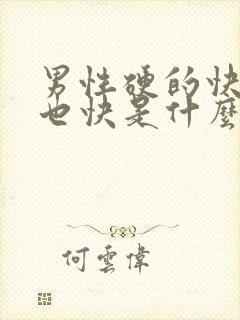 男性硬的快
也快是什麼
何雲偉